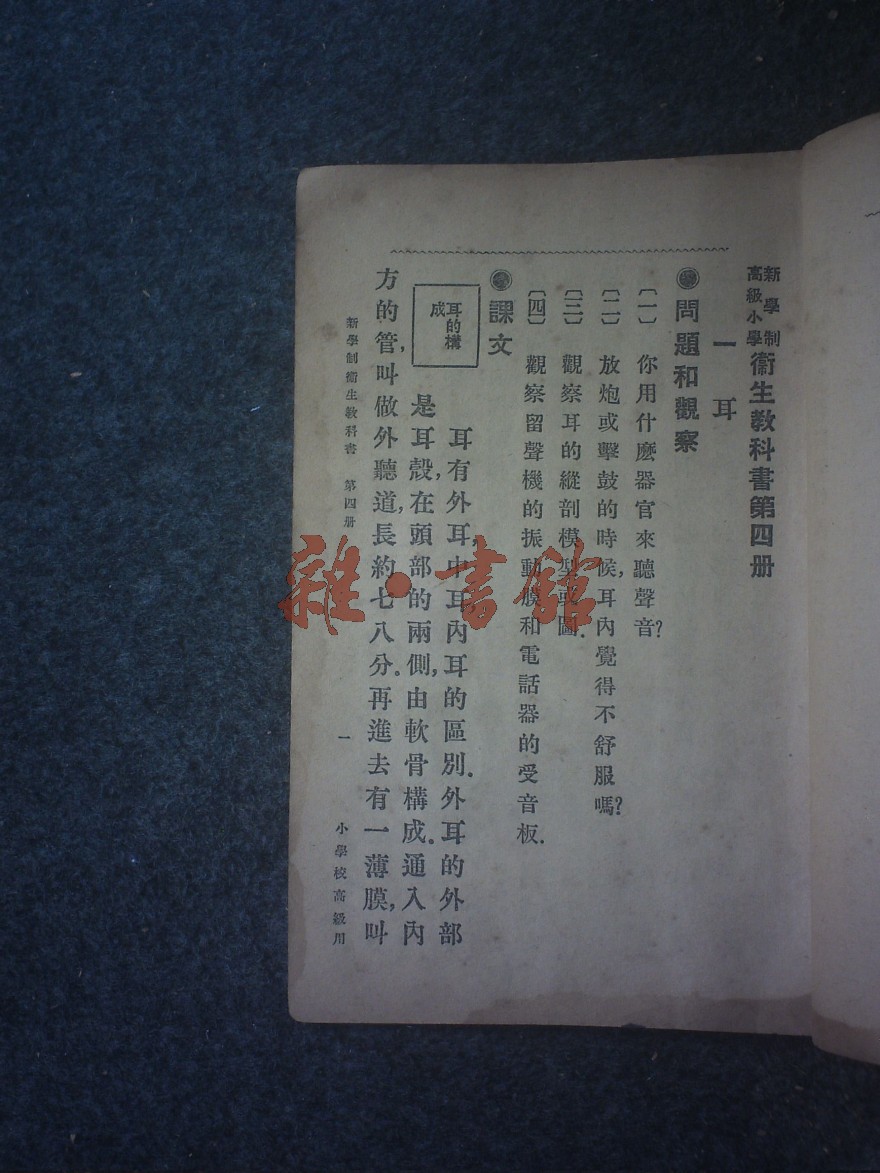 新學制
高級小學
衞生教科書第四册
一 耳
問題和觀察
〔一〕 你用什麽器官來聽聲音?
〔二〕 放炮或擊鼓的時候,耳內覺得不舒服嗎?
〔三〕 觀察耳的縱剖模型或圖.
〔四〕 觀察留聲機的振動膜和電話器的受音板.
課文
耳的構
成
耳有外耳,中耳內耳的區別.外耳的外部
是耳殼,在頭部的兩側,由軟骨構成.通入內
方的管,叫做外聽道,長約七八分.再進去有一薄膜,叫
新學制衞生教科書 第四册
一
小學校高級用
雜·書館